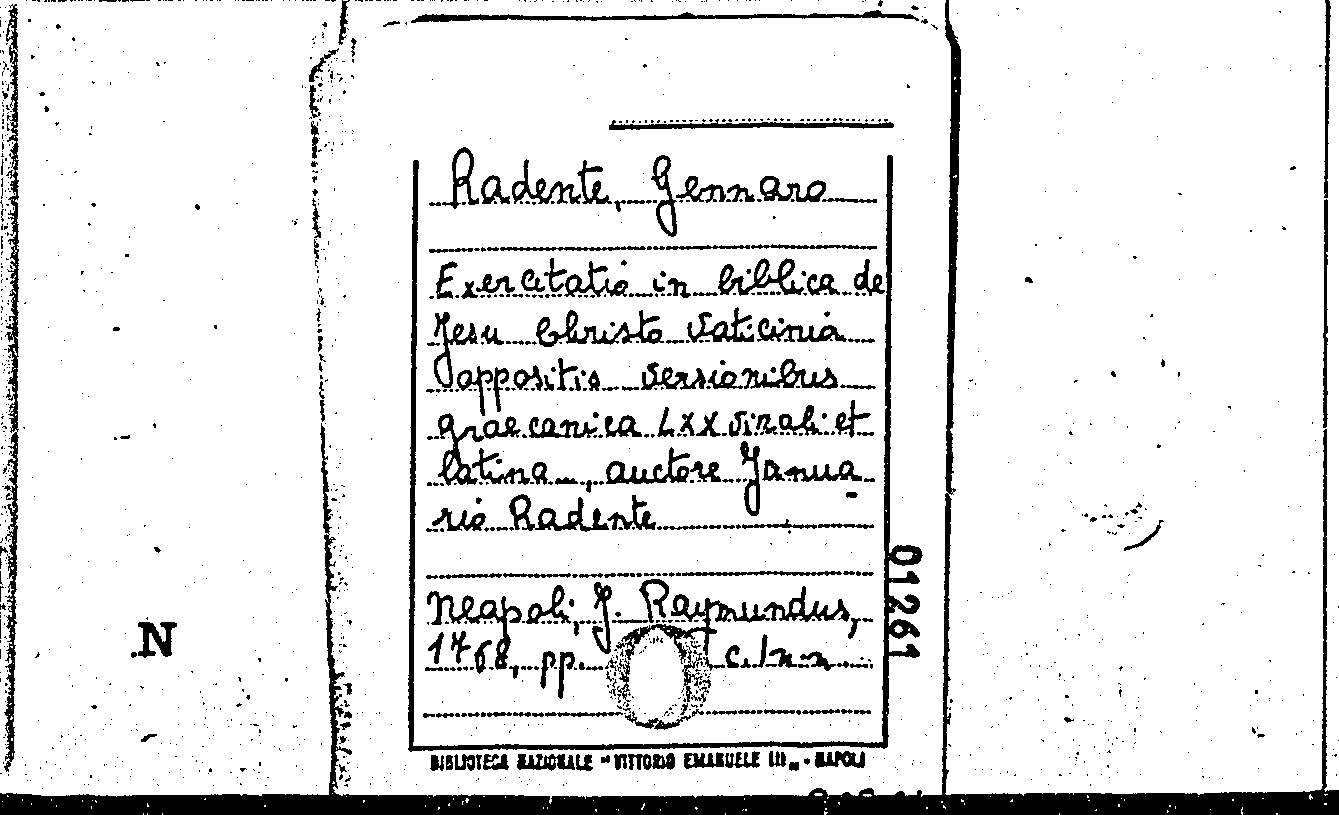 Radente, Gennaro
Exercitatio in biblica de
Jesu Christo vaticinia
appositis versionibus
graecanica LXX virali et
latina, auctore Janua
rio Radente
Neapoli, J. Raymundus,
1768, pp. c.1 n.n.
01261
N
BIBLIOTECA NAZIONALE "VITTORIO EMANUELE III" - NAPOLI